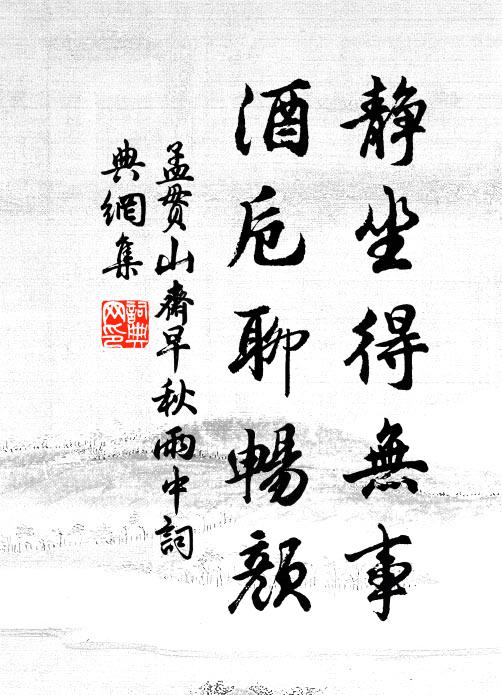 静坐得無事
酒卮聊暢顏
孟貫山齋早秋雨中詞
典網集
詞典
网印